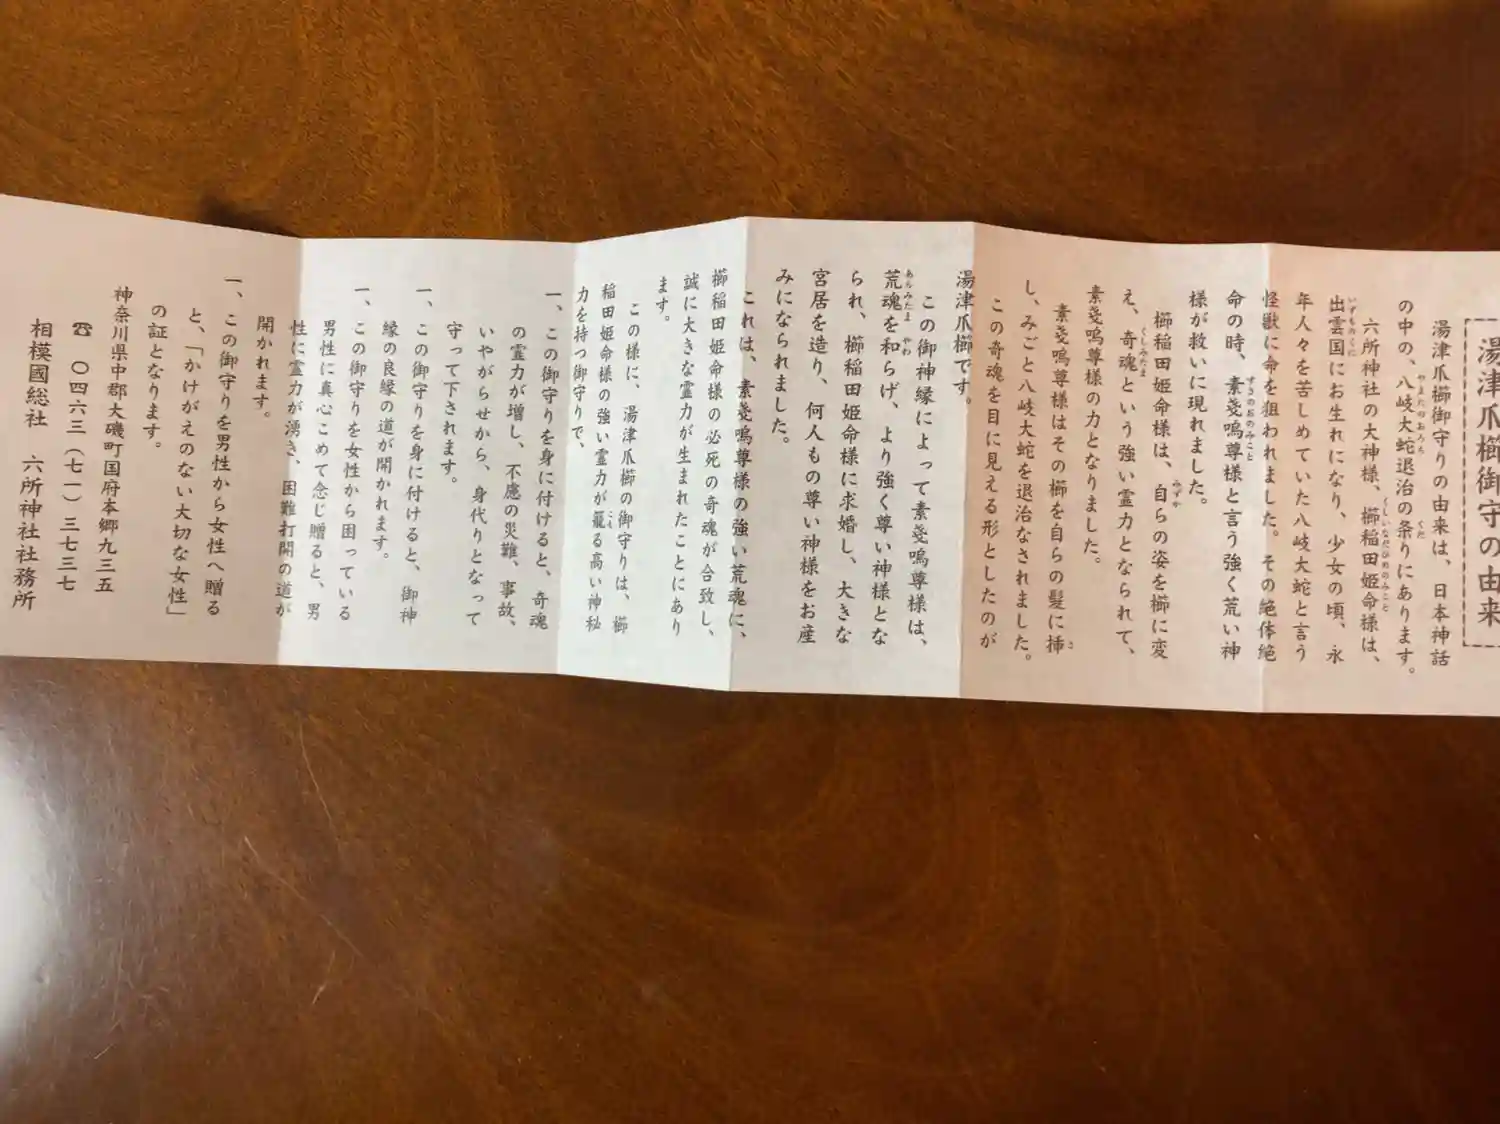 湯津爪櫛御守の由来
湯津爪櫛御守りの由来は、日本神話
の中の、八岐大蛇退治の条りにあります。
六所神社の大神様、櫛稲田姫命様は、
出雲国にお生れになり、少女の頃、永
年人々を苦しめていた八岐大蛇と言う
怪獣に命を狙われました。その絶体絶
命の時、素戔嗚尊様と言う強く荒い神
様が救いに現れました。
櫛稲田姫命様は、自らの姿を櫛に変
え、奇魂という強い霊力となられて、
素戔嗚尊様の力となりました。
素戔嗚尊様はその櫛を自らの髪に挿
し、みごと八岐大蛇を退治なされました。
この奇魂を目に見える形としたのが
湯津爪櫛です。
この御神縁によって素戔嗚尊様は、
荒魂を和らげ、より強く尊い神様とな
られ、櫛稲田姫命様に求婚し、大きな
宮居を造り、何人もの尊い神様をお産
みになられました。
これは、素戔嗚尊様の強い荒魂に、
櫛稲田姫命様の必死の奇魂が合致し、
誠に大きな霊力が生まれたことにあり
ます。
この様に、湯津爪櫛の御守りは、櫛
稲田姫命様の強い霊力が籠る高い神秘
力を持つ御守りで、
一、この御守りを身に付けると、奇魂
の霊力が増し、不慮の災難、事故、
いやがらせから、身代りとなって
守って下されます。
一、この御守りを身に付けると、御神
縁の良縁の道が開かれます。
一、この御守りを女性から困っている
男性に真心こめて念じ贈ると、男
性に霊力が湧き、困難打開の道が
開かれます。
一、この御守りを男性から女性へ贈る
と、「かけがえのない大切な女性」
の証となります。
神奈川県中郡大磯町国府本郷九三五
☎ 〇四六三(七一)三七三七
相模國総社 六所神社社務所